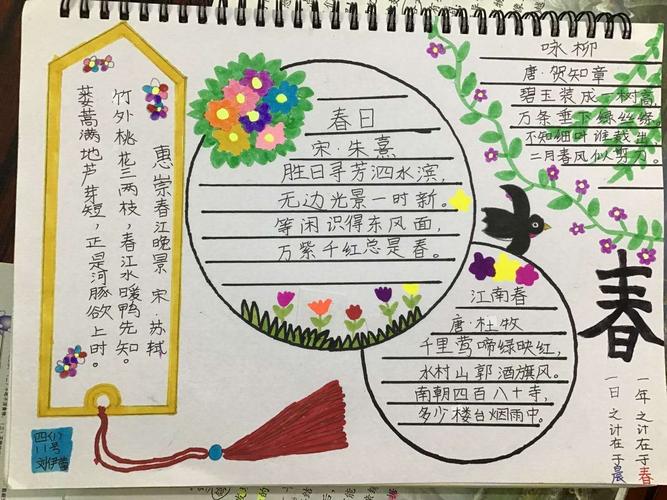 惠崇春江晚景 宋·苏轼
竹外桃花三两枝，春江水暖鸭先知。
蒌蒿满地芦芽短，正是河豚欲上时。
春日
宋·朱熹
胜日寻芳泗水滨，
无边光景一时新。
等闲识得东风面，
万紫千红总是春。
咏柳
唐·贺知章
碧玉装成一树高，
万条垂下绿丝绦。
不知细叶谁裁出，
二月春风似剪刀。
江南春
唐·杜牧
千里莺啼绿映红，
水村山郭酒旗风。
南朝四百八十寺，
多少楼台烟雨中。
春
一年之计在于春
一日之计在于晨
四(1)
11号